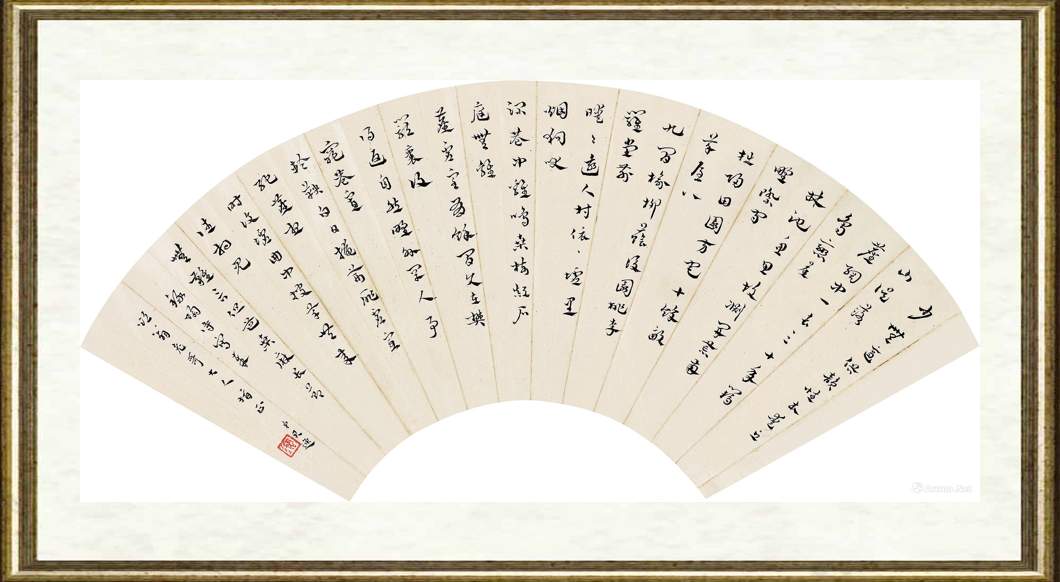 少無適俗韻性本愛丘
山誤落
塵網中一去三十年羈
鳥戀舊
林池魚思故淵開荒南
野際守
拙歸田園方宅十餘畝
草屋八
九間榆柳蔭後園桃李
羅堂前
曖〻遠人村依〻墟里
烟狗吠
深巷中雞鳴桑樹顛戶
庭無雜
塵虛室有餘閒久在樊
籠裏復
得返自然野外罕人事
窮巷寡
輪鞅白日掩荊扉虛室
絕塵想
時復墟曲中披草共來
往相見
無雜言但道桑麻長
錄陶詩寫奉
老哥大人指正